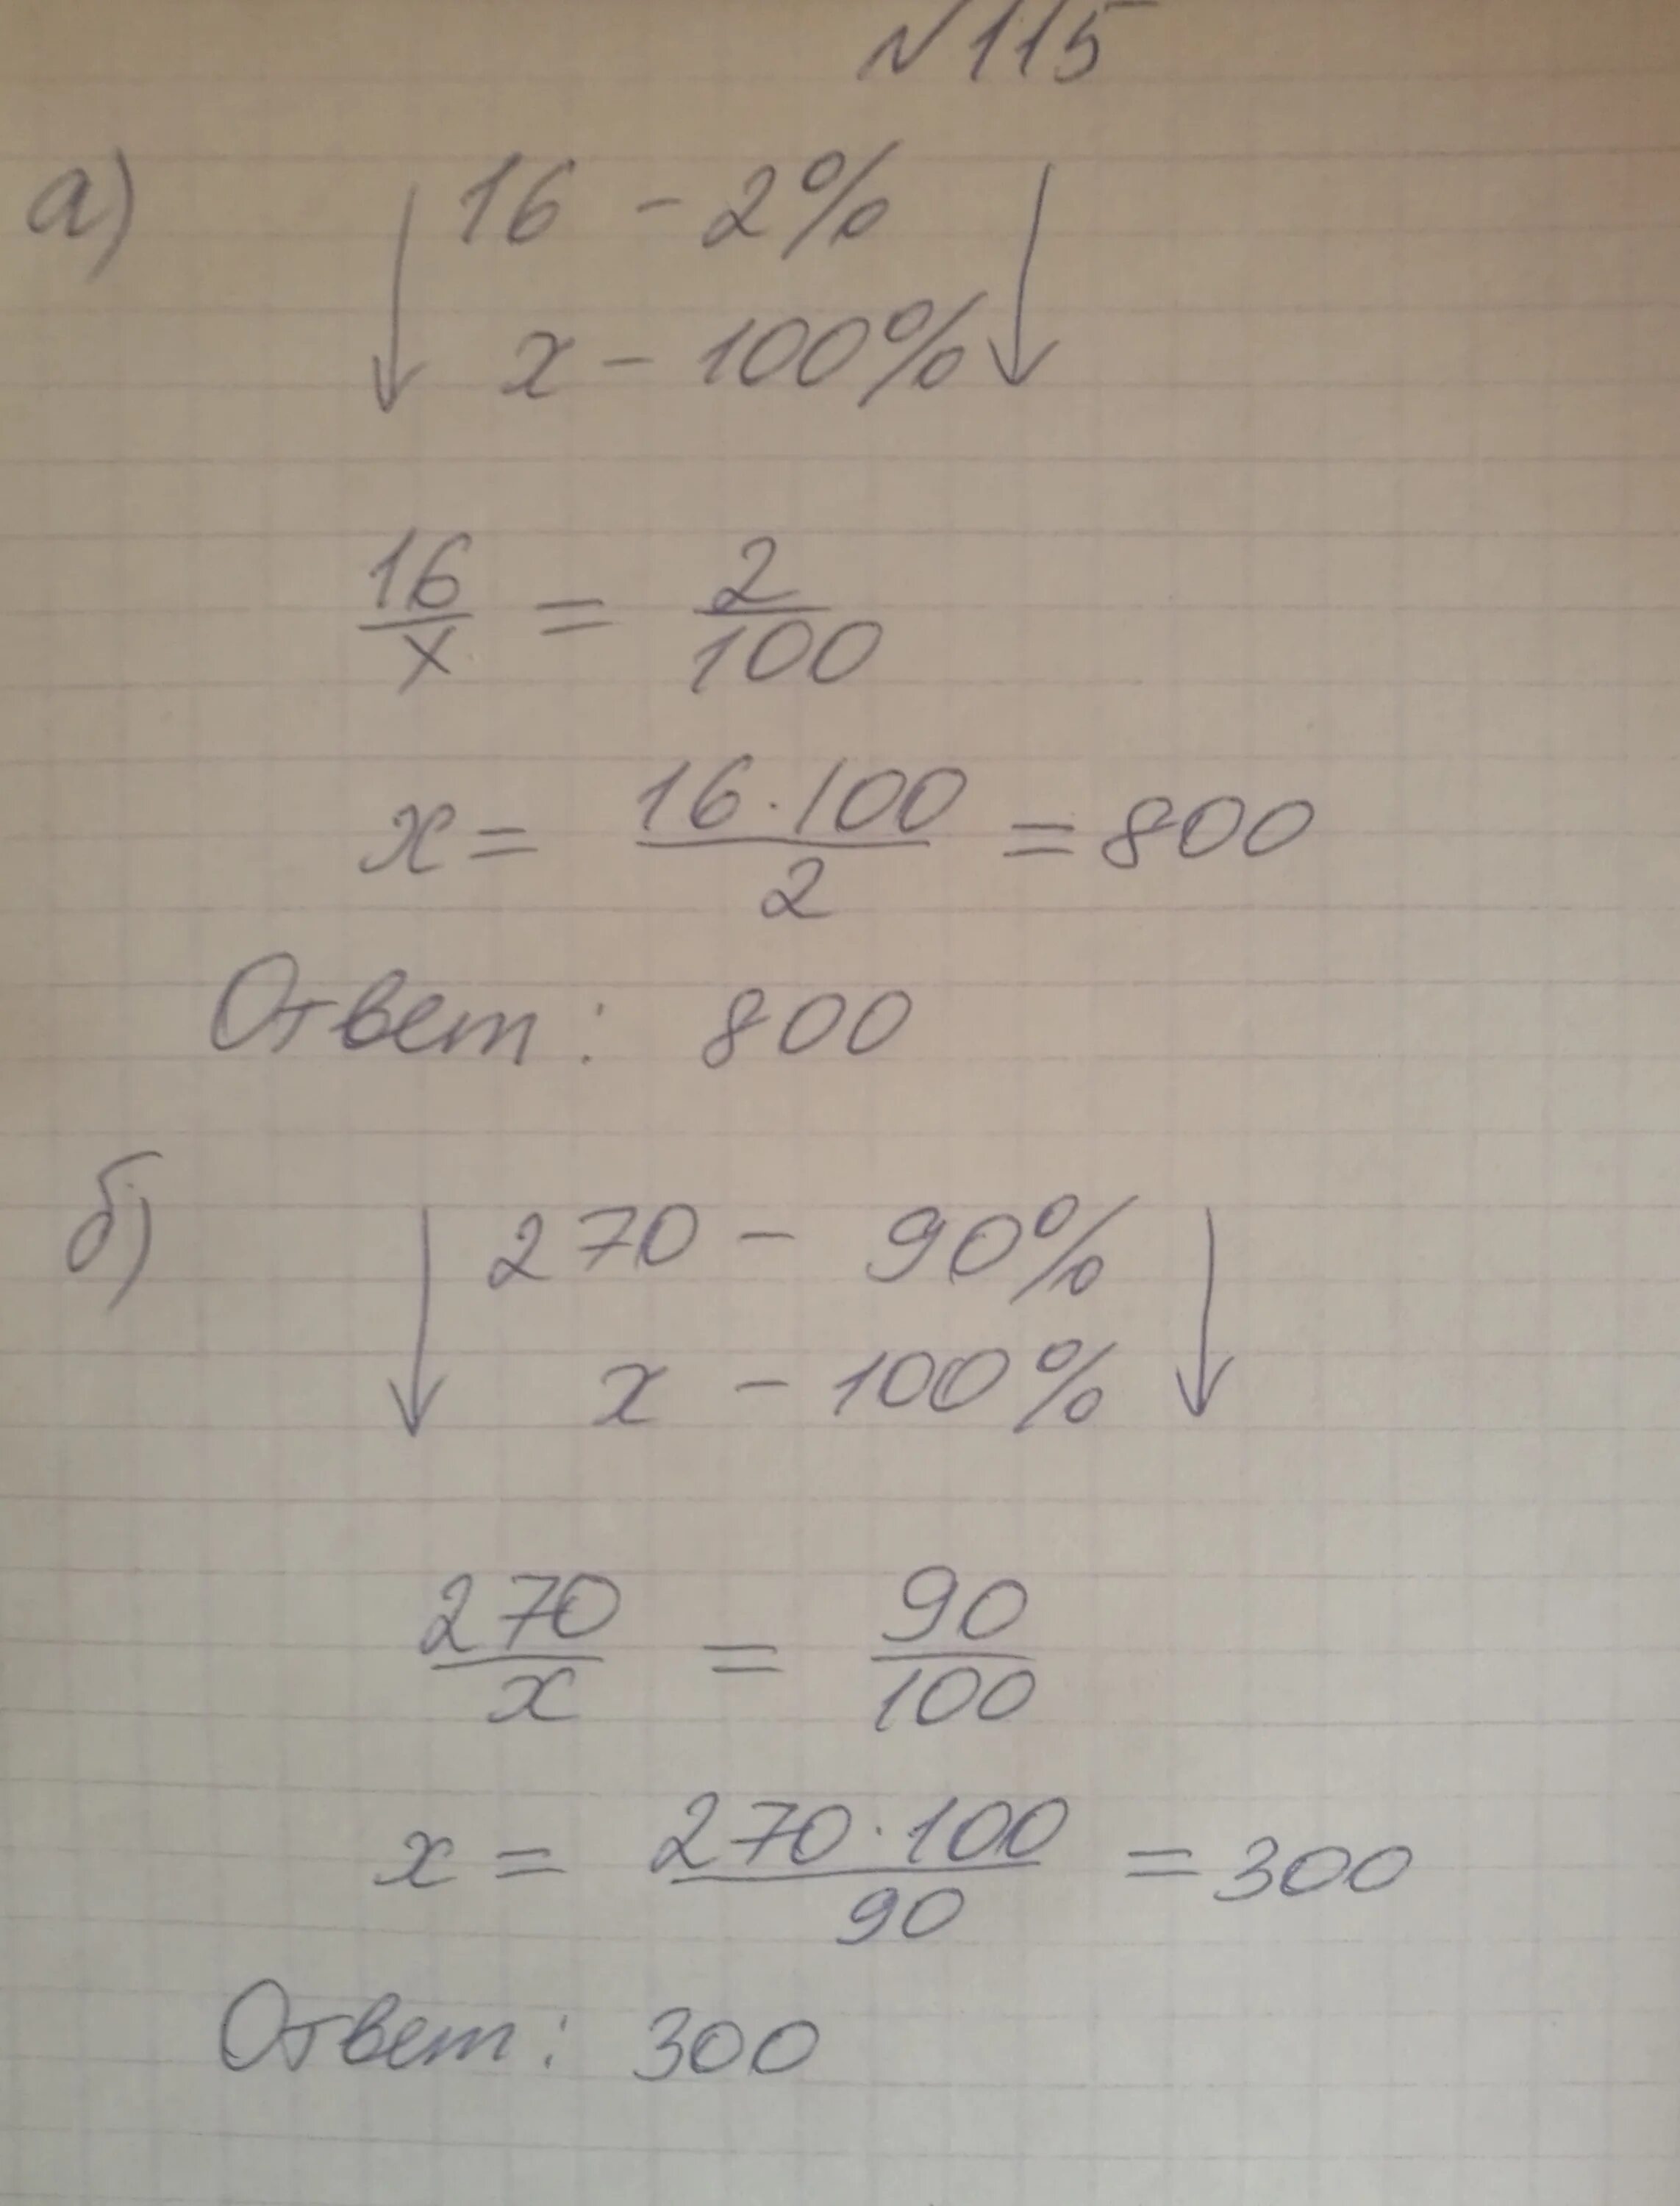 №115
а) 16 - 2%
x - 100%
16/x = 2/100
x = 16·100/2 = 800
Ответ: 800
б) 270 - 90%
x - 100%
270/x = 90/100
x = 270·100/90 = 300
Ответ: 300